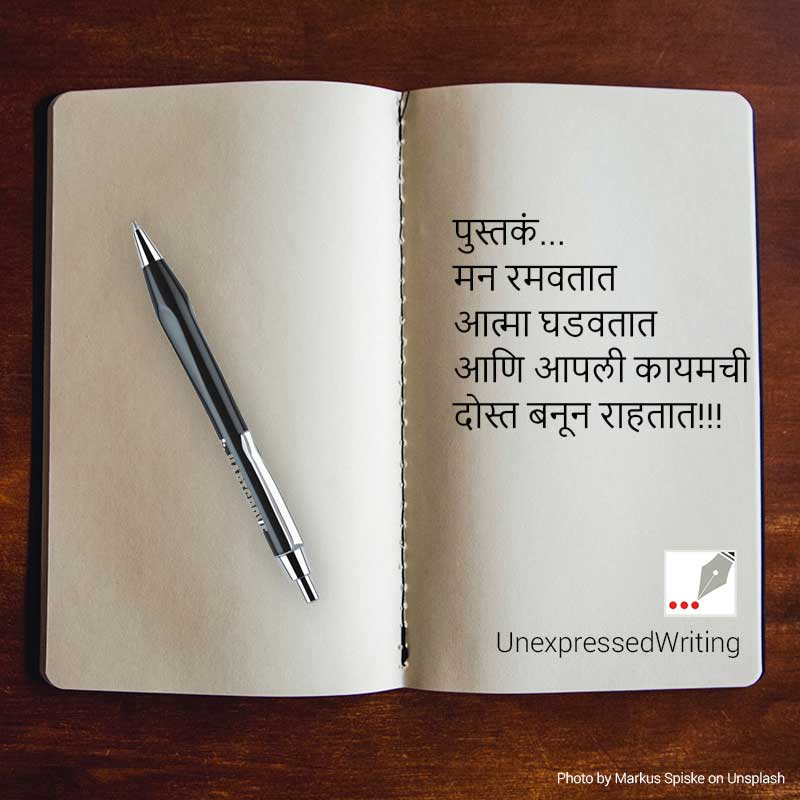 पुस्तकं...
मन रमवतात
आत्मा घडवतात
आणि आपली कायमची
दोस्त बनून राहतात!!!
UnexpressedWriting
Photo by Markus Spiske on Unsplash